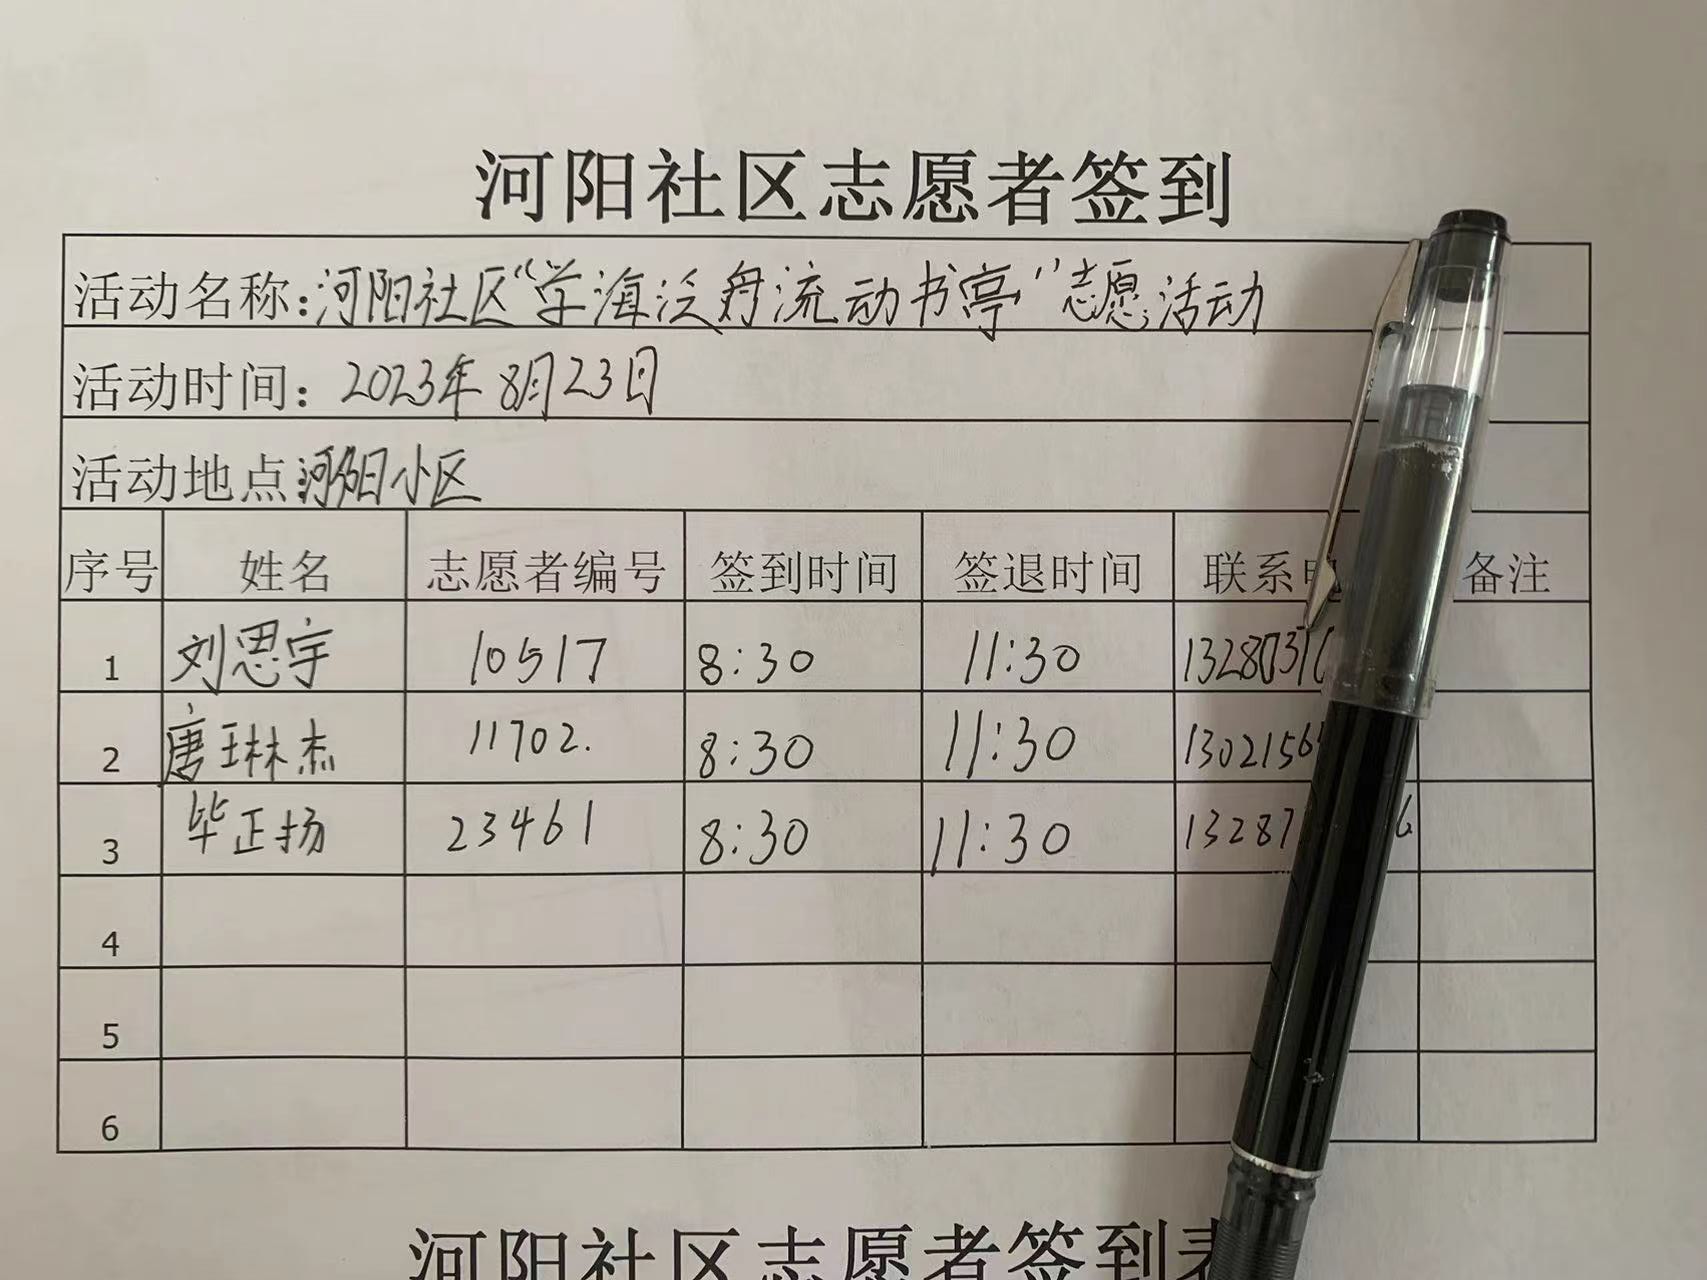 河阳社区志愿者签到
活动名称:河阳社区“学海泛舟流动书亭”志愿活动
活动时间：2023年8月23日
活动地点河阳小区
序号 姓名 志愿者编号 签到时间 签退时间 联系电 备注
1 刘思宇 10517 8:30 11:30
2 唐琳杰 11702. 8:30 11:30 1302156
3 毕正扬 23461 8:30 11:30 13287
4
5
6
河阳社区志愿者签到表